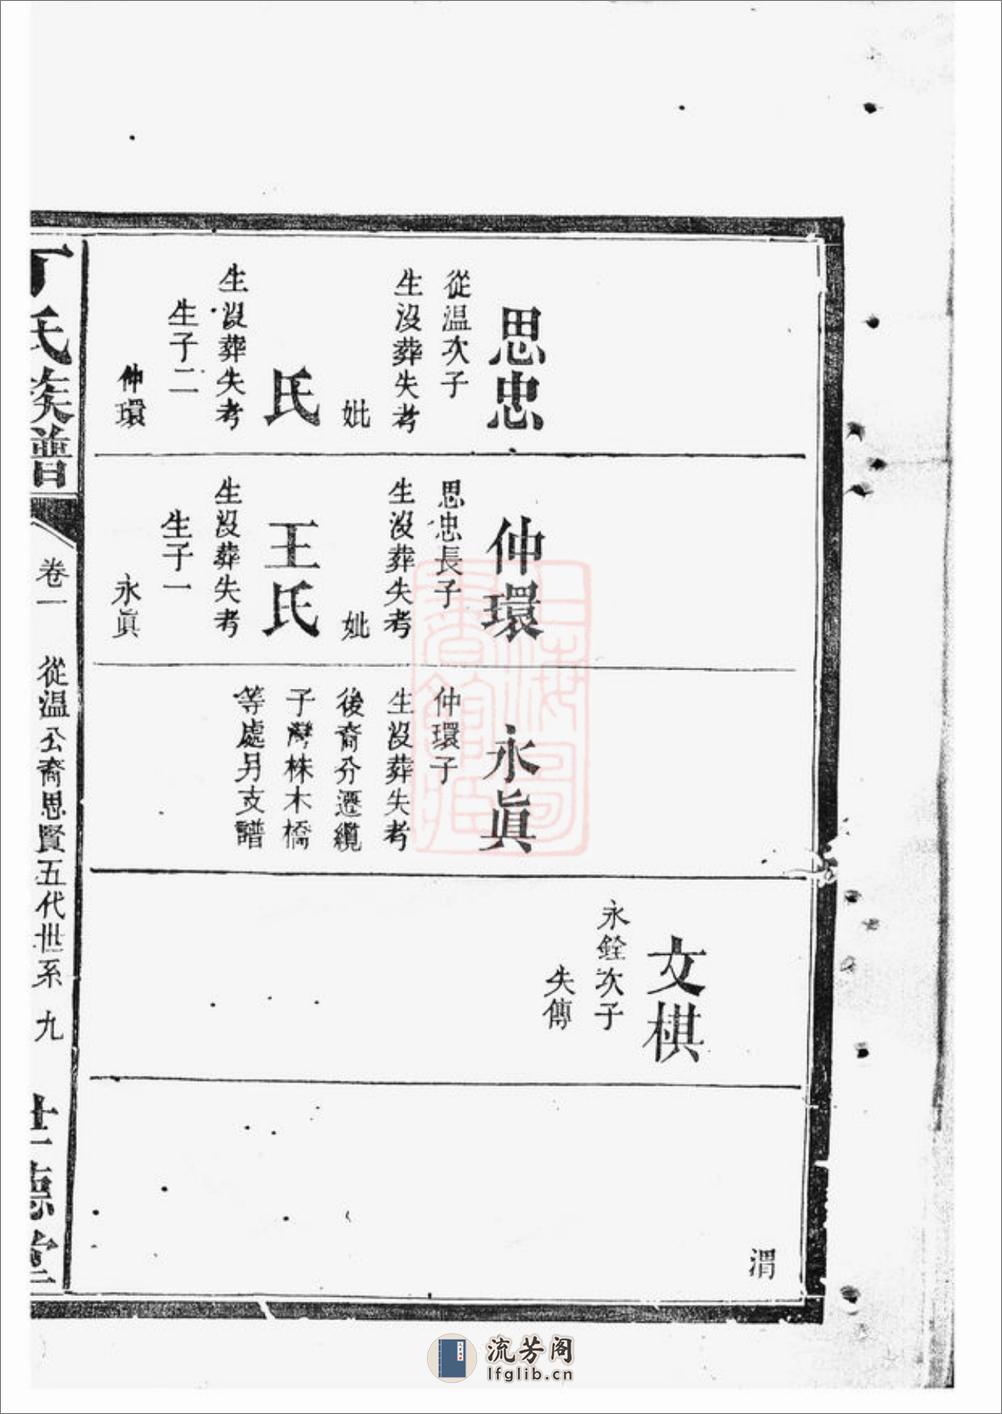 思忠
從温次子
生沒葬失考
妣
氏
生沒葬失考
生子二
仲環
仲環
思忠長子
生沒葬失考
妣
王氏
生沒葬失考
生子一
永眞
永眞
仲環子
生沒葬失考
後裔分遷纜
子灣株木橋
等處另支譜
文棋
永銓次子
失傳
渭
丁氏族譜
卷一
從温公裔思賢五代世系
九
世德堂
流芳阁
lfglib.cn